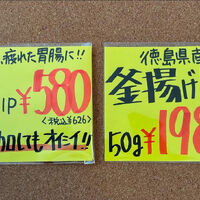 疲れた胃腸に!!
1P ¥580
<税込¥626>
ロしても オイシイ!!
徳島県産
釜揚げ
50g ¥198